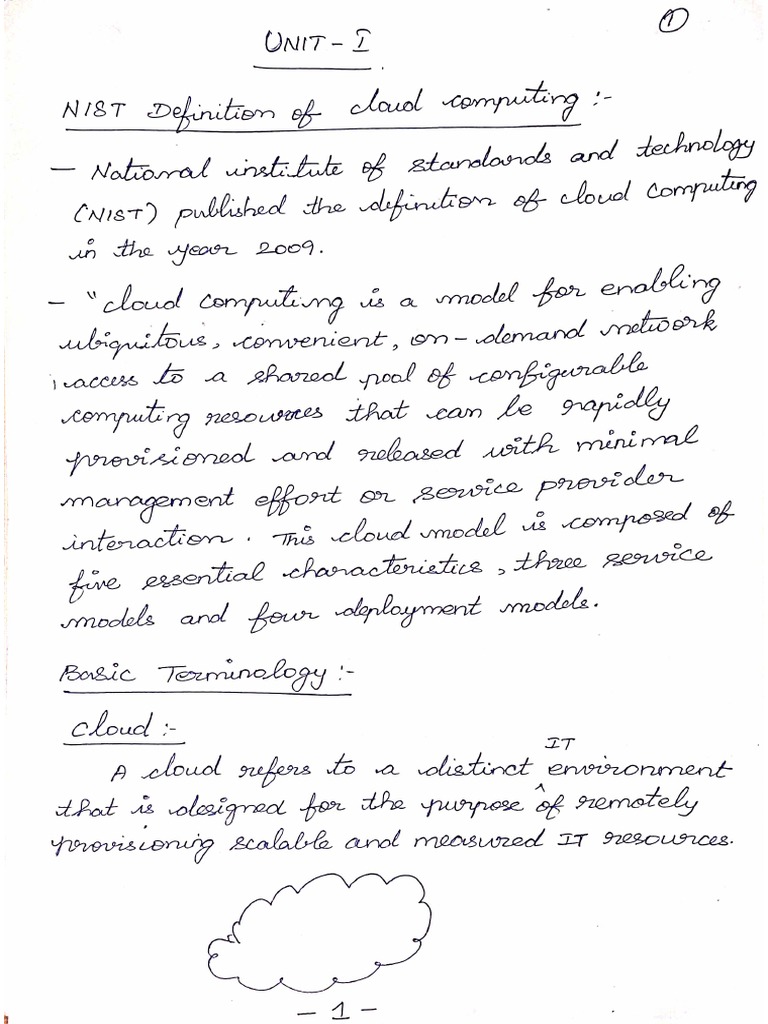 ①
UNIT - I
NIST Definition of cloud computing :-
- National institute of standards and technology
(NIST) published the definition of cloud computing
in the year 2009.
- "cloud computing is a model for enabling
ubiquitous, convenient, on-demand network
access to a shared pool of configurable
computing resources that can be rapidly
provisioned and released with minimal
management effort or service provider
interaction. This cloud model is composed of
five essential characteristics, three service
models and four deployment models.
Basic Terminology :-
Cloud :-
IT
A cloud refers to a distinct ^ environment
that is designed for the purpose of remotely
provisioning scalable and measured IT resources.
- 1 -